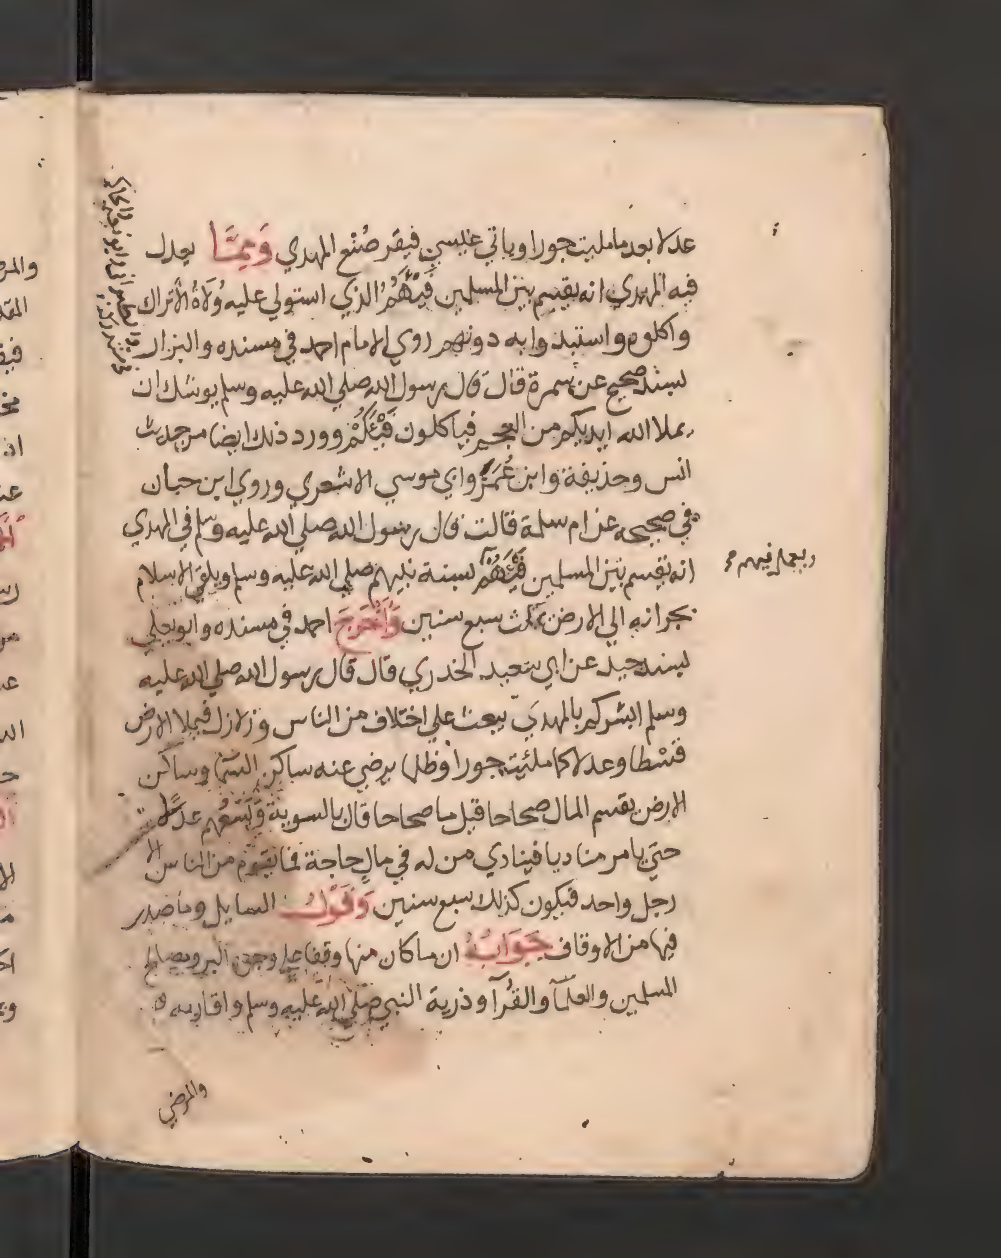 عدلا بعد ما مليت جورا وياتي عيسي فيقر صُنْع المهدي وَمِمَّا يعدل
فيه المهدي انه يقسم بين المسلمين فَيْئَهُمُ الذي استولي عليه وُلَاةُ الأتراك
واكلوه واستبدوا به دونهم روي الامام احمد في مسنده والبزار
والطبراني وابو نعيم والحاكم
في مستدركه
بسند صحيح عن سمرة قال قال رسول الله صلي الله عليه وسلم يوشك ان
يملا الله ايديكم من العجم فياكلون فَيْئَكُمْ وورد ذلك ايضا من حديث
انس وحذيفة وابن عُمَرَ وابي موسي الاشعري وروي ابن حبان
في صحيحه عن ام سلمة قالت قال رسول الله صلي الله عليه وسلم في المهدي
انه يقسم بين المسلمين فَيْئَهُمْ بسنة نبيهم صلي الله عليه وسلم ويلقي الاسلام
ويعمل فيهم
بجرانه الي الارض يمكث سبع سنين وَأَخْرَجَ احمد في مسنده وابو يعلي
بسند جيد عن ابي سعيد الخدري قال قال رسول الله صلي الله عليه
وسلم ابشركم بالمهدي يبعث علي اختلاف من الناس وزلازل فيملا الارض
قسْطا وعدلا كما ملئت جورا وظلما يرضي عنه ساكن السما وساكن
الارض يقسم المال صحاحا قيل ما صحاحا قال بالسوية وَيَسَعُهم عدلُه
حتي يامر مناديا فينادي من له في مال حاجة فما يقوم من الناس الا
رجل واحد فيكون كذلك سبع سنين وَقَوْلُ السايل وما ضدر
فيها من الاوقاف جَوَابُهُ ان ما كان منها وقفا علي وجوه البر ومصالح
المسلمين والعلمآ والقُرآ وذرية النبي صلي الله عليه وسلم واقاربه
والمرضي